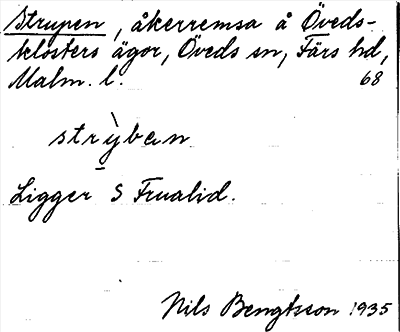 Strupen, åkerremsa å Öveds-
klosters ägor, Öveds sn, Färs hd,
Malm. l. 68
strỳ̱ban
Ligger S Frualid.
Nils Bengtsson 1935